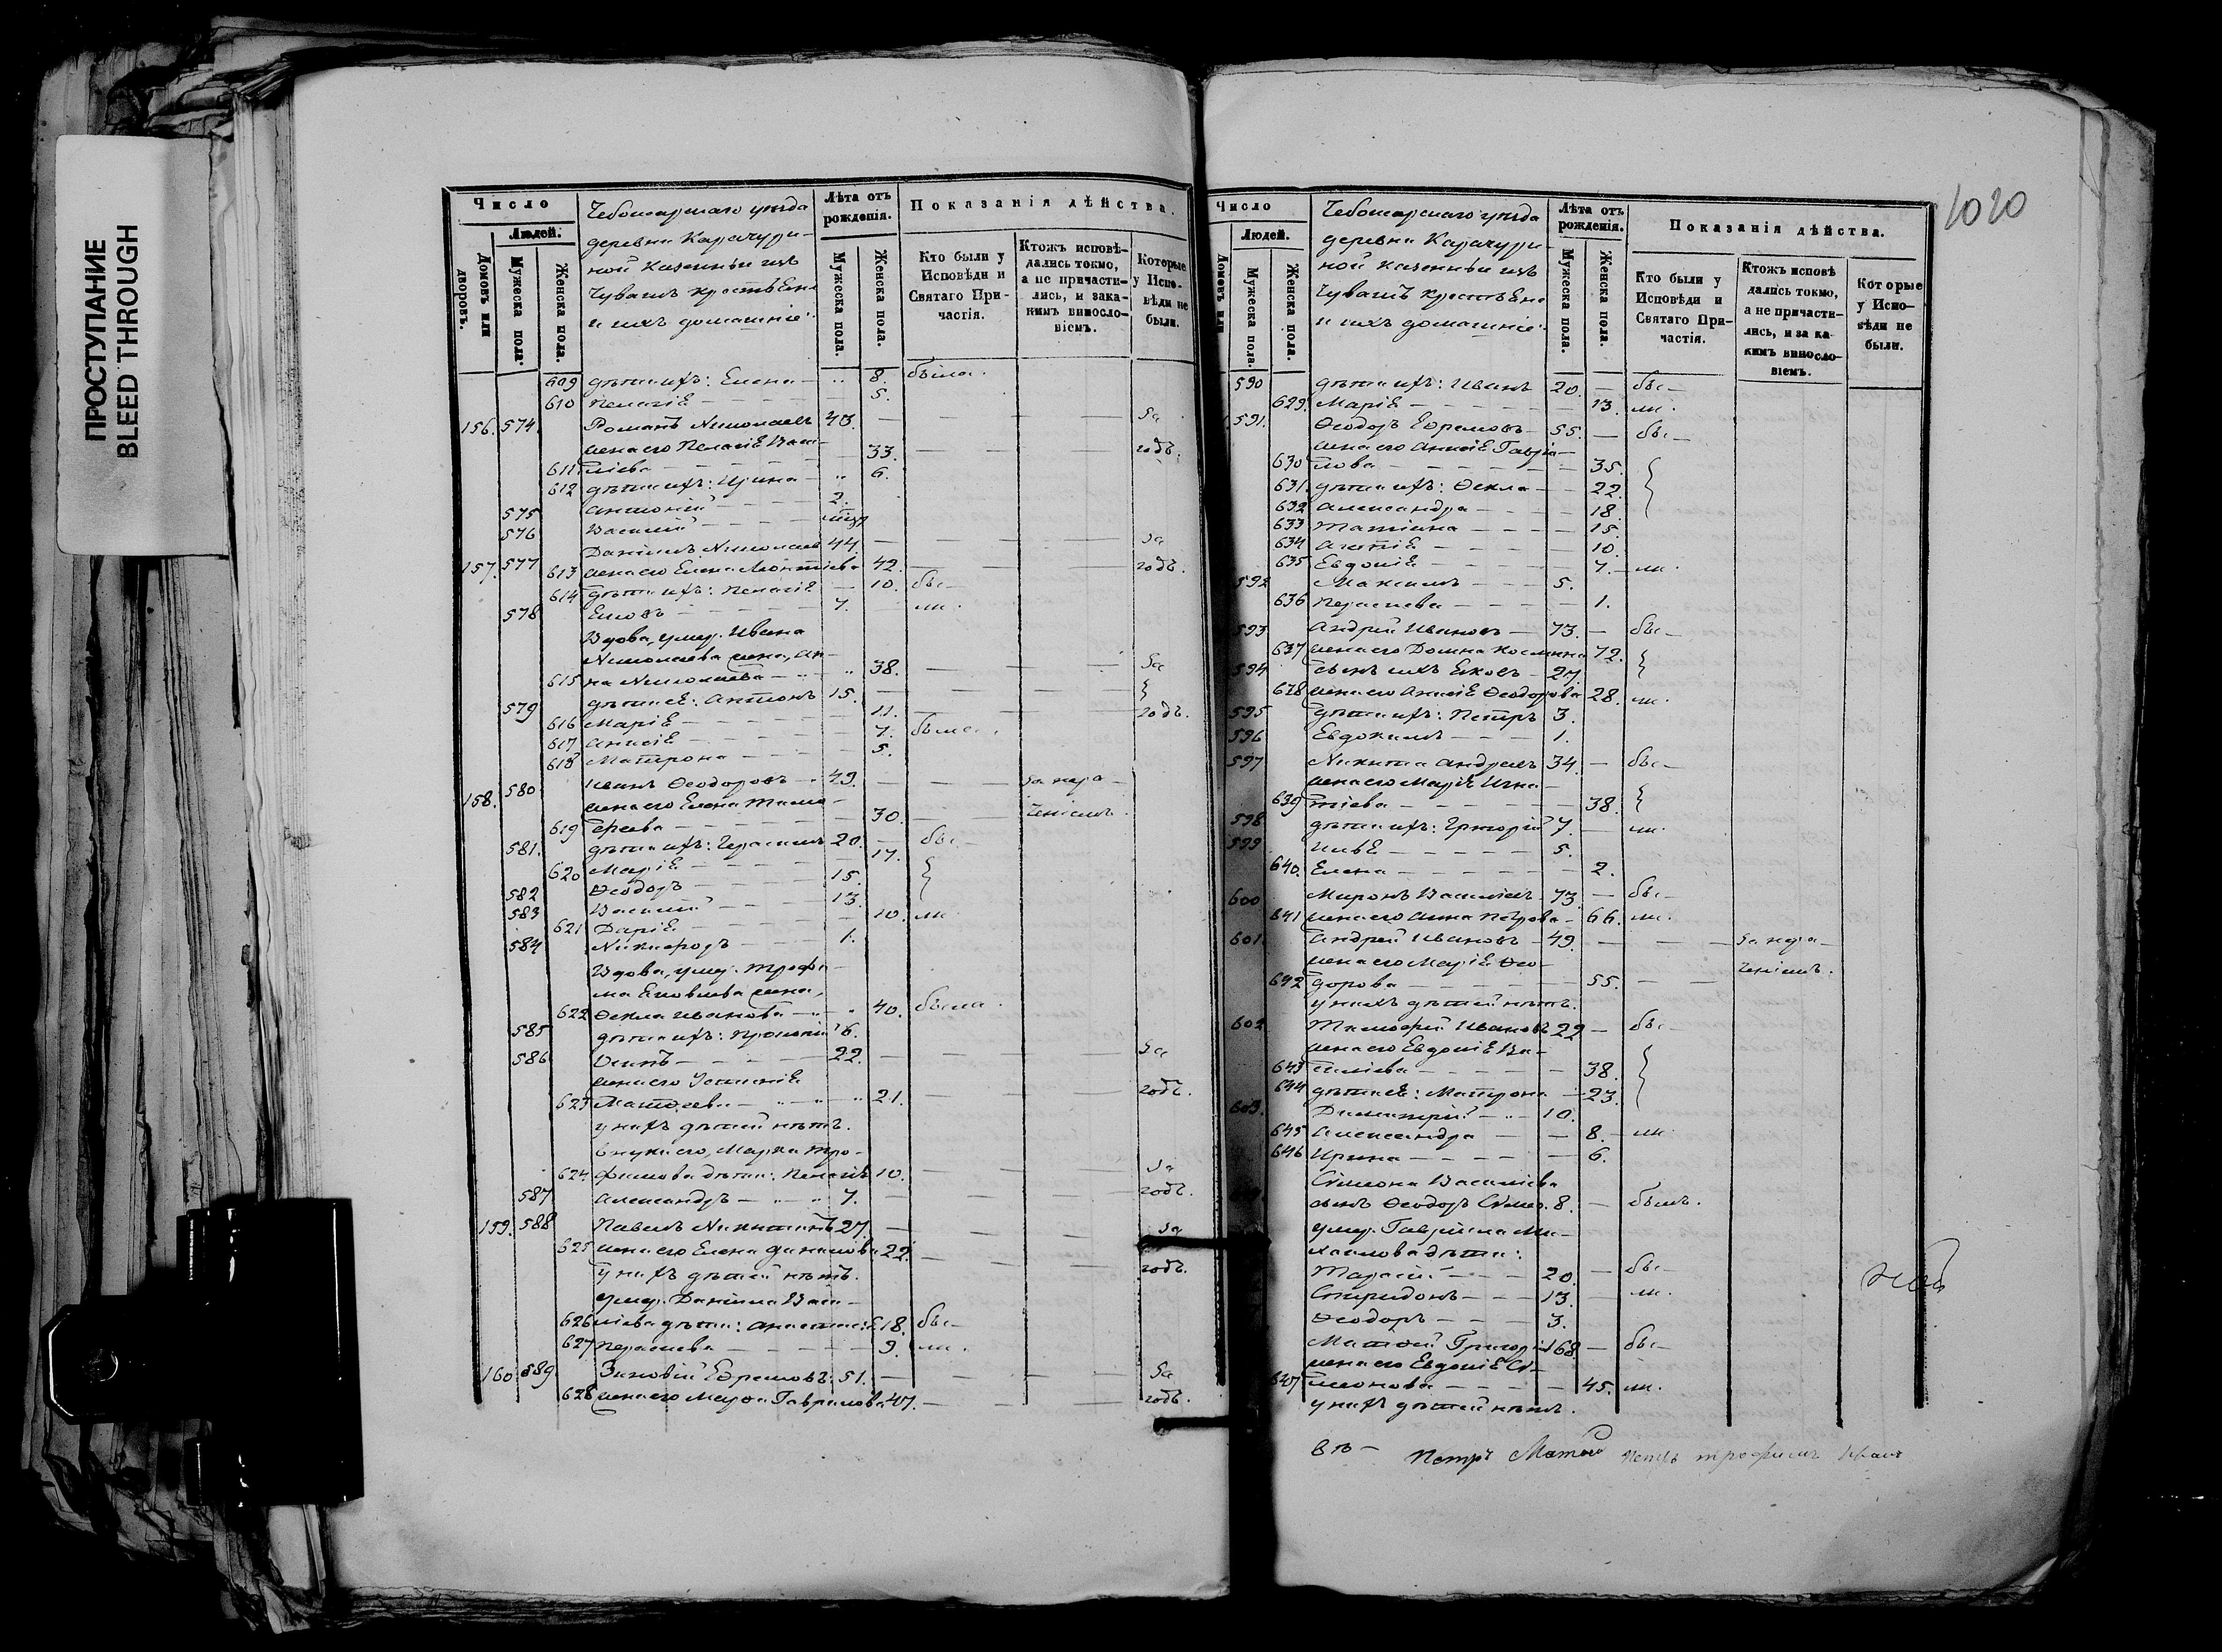 ПРОСТУПАНИЕ
BLEED THROUGH
Число
Людей.
Домовъ или дворовъ.
Мужеска пола.
Женска пола.
Чебоксарскаго уѣзда
деревни Карачури-
ной казенныи изъ
Чувашъ крестьяне
и ихъ домашніе:
Лѣта отъ рожденія.
Мужеска пола.
Женска пола.
Показанія дѣйства.
Кто были у Исповѣди и Святаго Причастія.
Ктожъ исповѣдались токмо, а не причастились, и закакимъ винословіемъ.
Которые у Исповѣди не были.
609 дѣти ихъ: Елена 8. была.
610 Пелагіѣ 5.
156. 574. Романъ Николаевъ 43. За
жена его Пелагіѣ Васи-
611 ліева 33. годъ.
612 дѣти ихъ: Ирина 6.
575 Антоній 2.
576 Василій
157. 577 Даніилъ Николаевъ 44. За
613 жена его Елена Леонтіева 42. годъ.
614 дѣти ихъ: Пелагіѣ 10. бы-
578 Ековъ 7. ли.
Вдова, умер. Ивана
Николаева жена, Ан-
615 на Николаева 38. За
579 дѣти ее: Антонъ 15. }
616 Маріѣ 11. годъ.
617 Анисіѣ 7. была.
618 Матрона 5.
158. 580 Иванъ Ѳеодоровъ 49. За нера-
жена его Елена Тимо-
619 феева 30. ченіемъ.
581. дѣти ихъ: Герасимъ 20. бы-
620 Маріѣ 17. }
582 Ѳеодоръ 15.
583 Василій 13.
621 Даріѣ 10. ли.
584 Никифоръ 1.
Вдова, умер. Трофи-
ма Ековлева жена,
622 Ѳекла Иванова 40. была.
585 дѣти ихъ: Прокопій 16.
586 Осипъ 22. За
жена его Устиніѣ
623 Матѳеева 21. годъ.
у нихъ дѣтей нѣтъ.
внуки его, Марка Тро-
624 фимова дѣти: Пелагіѣ 10. За
587 Александръ 7. годъ.
159. 588 Павелъ Никитинъ 27. За
625 жена его Елена Данилова 22. годъ.
у нихъ дѣтей нѣтъ.
умер. Даніила Васи-
626 ліева дѣти: Анастасіѣ 18. бы-
627 Парасковья 9. ли.
160 589. Зиновій Ефремовъ 51. За
628 жена его Марѳа Гаврилова 47. годъ.
1020
Число
Людей.
Домовъ или
Мужеска пола.
Женска пола.
Чебоксарскаго уѣзда
деревни Карачури-
ной казенныи изъ
Чувашъ крестьяне
и ихъ домашніе:
Лѣта отъ рожденія.
Мужеска пола.
Женска пола.
Показанія дѣйства.
Кто были у Исповѣди и Святаго Причастія.
Ктожъ исповѣдались токмо, а не причастились, и за какимъ винословіемъ.
Которые у Исповѣди не были.
590 дѣти ихъ: Иванъ 20. бы-
629. Маріѣ 13. ли.
591. Ѳеодоръ Ефремовъ 55. бы-
жена его Анисіѣ Гаврі-
630 лова 35. }
631. дѣти ихъ: Ѳекла 22.
632 Александра 18.
633 Татіана 15.
634 Агафіѣ 10.
635 Евдокіѣ 7. ли.
592 Максимъ 5.
636 Парасковья 1.
593 Андрей Ивановъ 73. бы-
637 жена его Домна Космина 72. }
594 сынъ ихъ Ековъ 27.
638 жена его Анисіѣ Ѳеодорова 28. ли.
595 дѣти ихъ: Петръ 3.
596 Евдокимъ 1.
597 Никита Андреевъ 34. бы-
жена его Маріѣ Игна-
639 тіева 38. }
598 дѣти ихъ: Григорій 7. ли.
599 Ильѣ 5.
640. Елена 2.
600 Миронъ Васильевъ 73. бы-
641 жена его Анна Петрова 66. ли.
601. Андрей Ивановъ 49. За нера-
жена его Маріѣ Ѳео-
642 дорова 55. ченіемъ.
у нихъ дѣтей нѣтъ.
602. Тимофей Ивановъ 22 бы-
жена его Евдокіѣ Ва-
643 силіева 38. }
644 дѣти ее: Матрона 23.
603. Димитрій 10.
645 Александра 8. ли.
646 Ирина 6.
Сѵмеона Василіева
сынъ Ѳеодоръ 8. былъ.
умер. Гавріила Ми-
хаилова дѣти:
Тарасій 20. бы-
Спиридонъ 13. ли.
Ѳеодоръ 3.
Матѳей Григорьевъ 68. бы-
жена его Евдокіѣ Сѵ-
647 меонова 45. ли.
у нихъ дѣтей нѣтъ.
Петръ